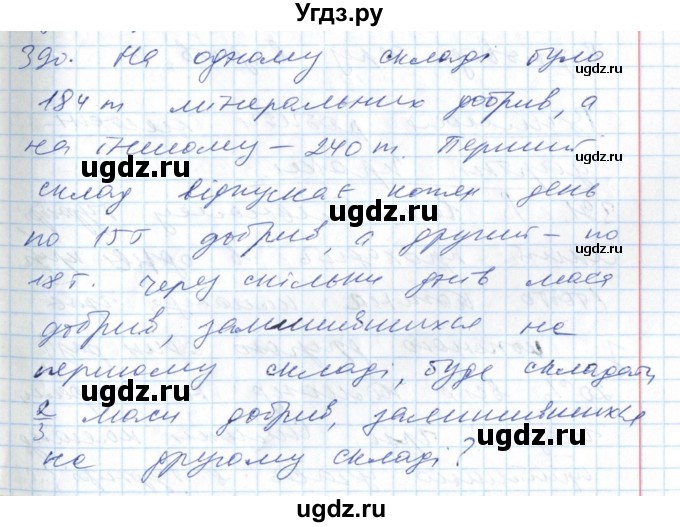 Угдз.ру
390. На одному складі було
184 т минеральних добрив, а
на іншому – 240 т. Перший
склад відпускає кожен день
по 15т добрив, а другий – по
18 т. Через скільки днів маса
добрив, залишившихся на
першому складі, буде складати
2/3 маси добрив, залишившихся
на другому складі?
ugdz.ru
ugdz.ru
ugdz.ru
ugdz.ru
ugdz.ru
ugdz.ru
ugdz.ru
ugdz.ru
ugdz.ru
ugdz.ru
ugdz.ru
ugdz.ru